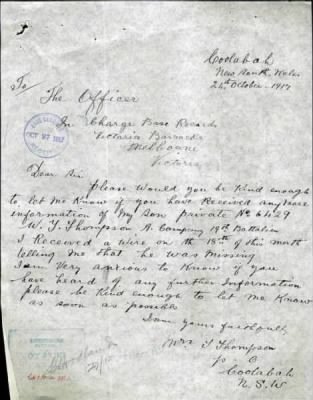 Coolabah
New South Wales
24th October 1917
To
The Officer
In Charge Base Records
Victoria Barracks
Melbourne
Victoria
Dear Sir
please Would you be Kind enough
to let me Know if you have Received any more
information of My Son private No 6429
W. J. Thompson A. Company 19th Battalion
I Received a Wire on the 18th of this month
telling Me that he was Missing
I am Very anxious to Know if you
have heard of any further Information
please be Kind enough to let me Know
as soon as possible
I am yours
Mrs J Thompson
p. O
Coolabah
N. S. W